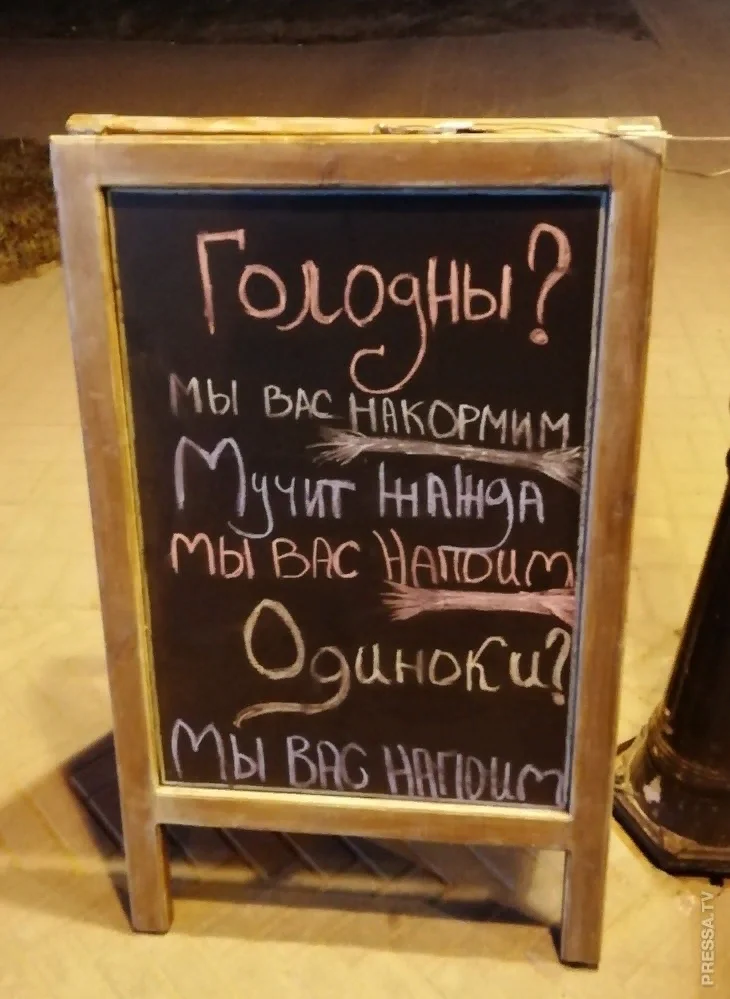 Голодны?
мы вас накормим
Мучит жажда
мы вас напоим
Одиноки?
Мы вас напоим
PRESSA.TV